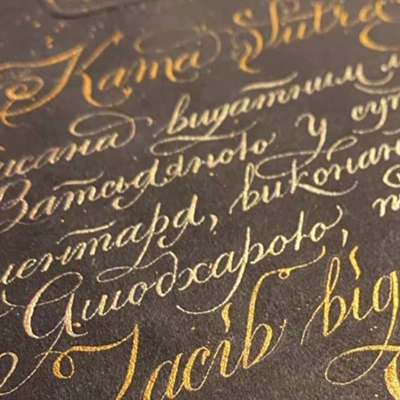 Kama Sutra
писана видатним м
Ватсьяяною у сут
ментаря, виконан
Яшодхарою, т
Засіб від